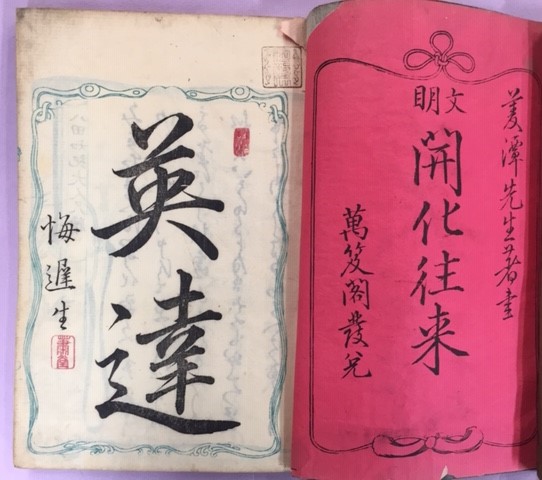 菱潭先生著書
文明
開化往来
萬笈閣發兌
英達
悔遲生